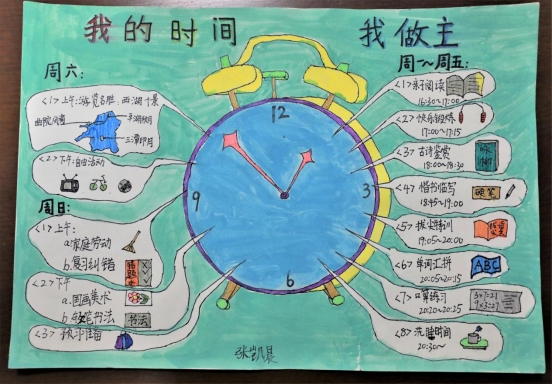 我的时间 我做主
周六:
<1>上午:游览名胜,西湖十景
曲院风荷
平湖秋月
三潭印月
<2>下午:自由活动
周日:
<1>上午:
a.家庭劳动
b.复习纠错
错题本
<2>下午
a.国画美术
b.硬笔书法
书法
<3>预习准备
周一~周五:
<1>亲子阅读
16:30~17:00
<2>快乐锻炼
17:00~17:15
<3>古诗鉴赏
18:00~18:30
<4>楷书临写
18:45~19:00
硬笔
<5>拔尖特训
19:05~20:00
<6>单词汇拼
20:05~20:15
ABC
<7>口算练习
20:20~20:25
3×7=21
9×3=27
<8>洗睡时间
20:30~
12
3
6
9
张凯晨